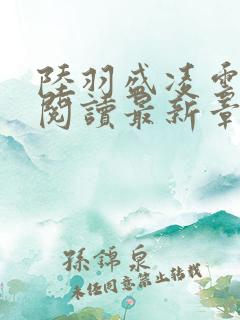 陸羽盛凌雲
閱讀最新章
孫錦泉
未經同意禁止轉載